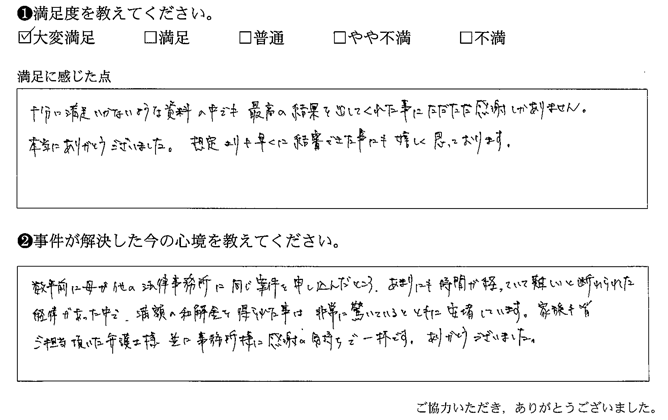 ❶満足度を教えてください。
☑大変満足 □満足 □普通 □やや不満 □不満
満足に感じた点
十分に満足いかないような資料の中でも最高の結果を出してくれた事にただただ感謝しかありません。
本当にありがとうございました。想定よりも早くに結審できた事にも嬉しく思っております。
❷事件が解決した今の心境を教えてください。
数年前に母が他の法律事務所に同じ案件を申し込んだところ、あまりにも時間が経っていて難しいと断わられた
経緯があった中で、満額の和解金を得られた事は非常に驚いているとともに安堵しています。家族共皆
ご担当頂いた弁護士様並に事務所様に感謝の気持ちで一杯です。ありがとうございました。
ご協力いただき、ありがとうございました。